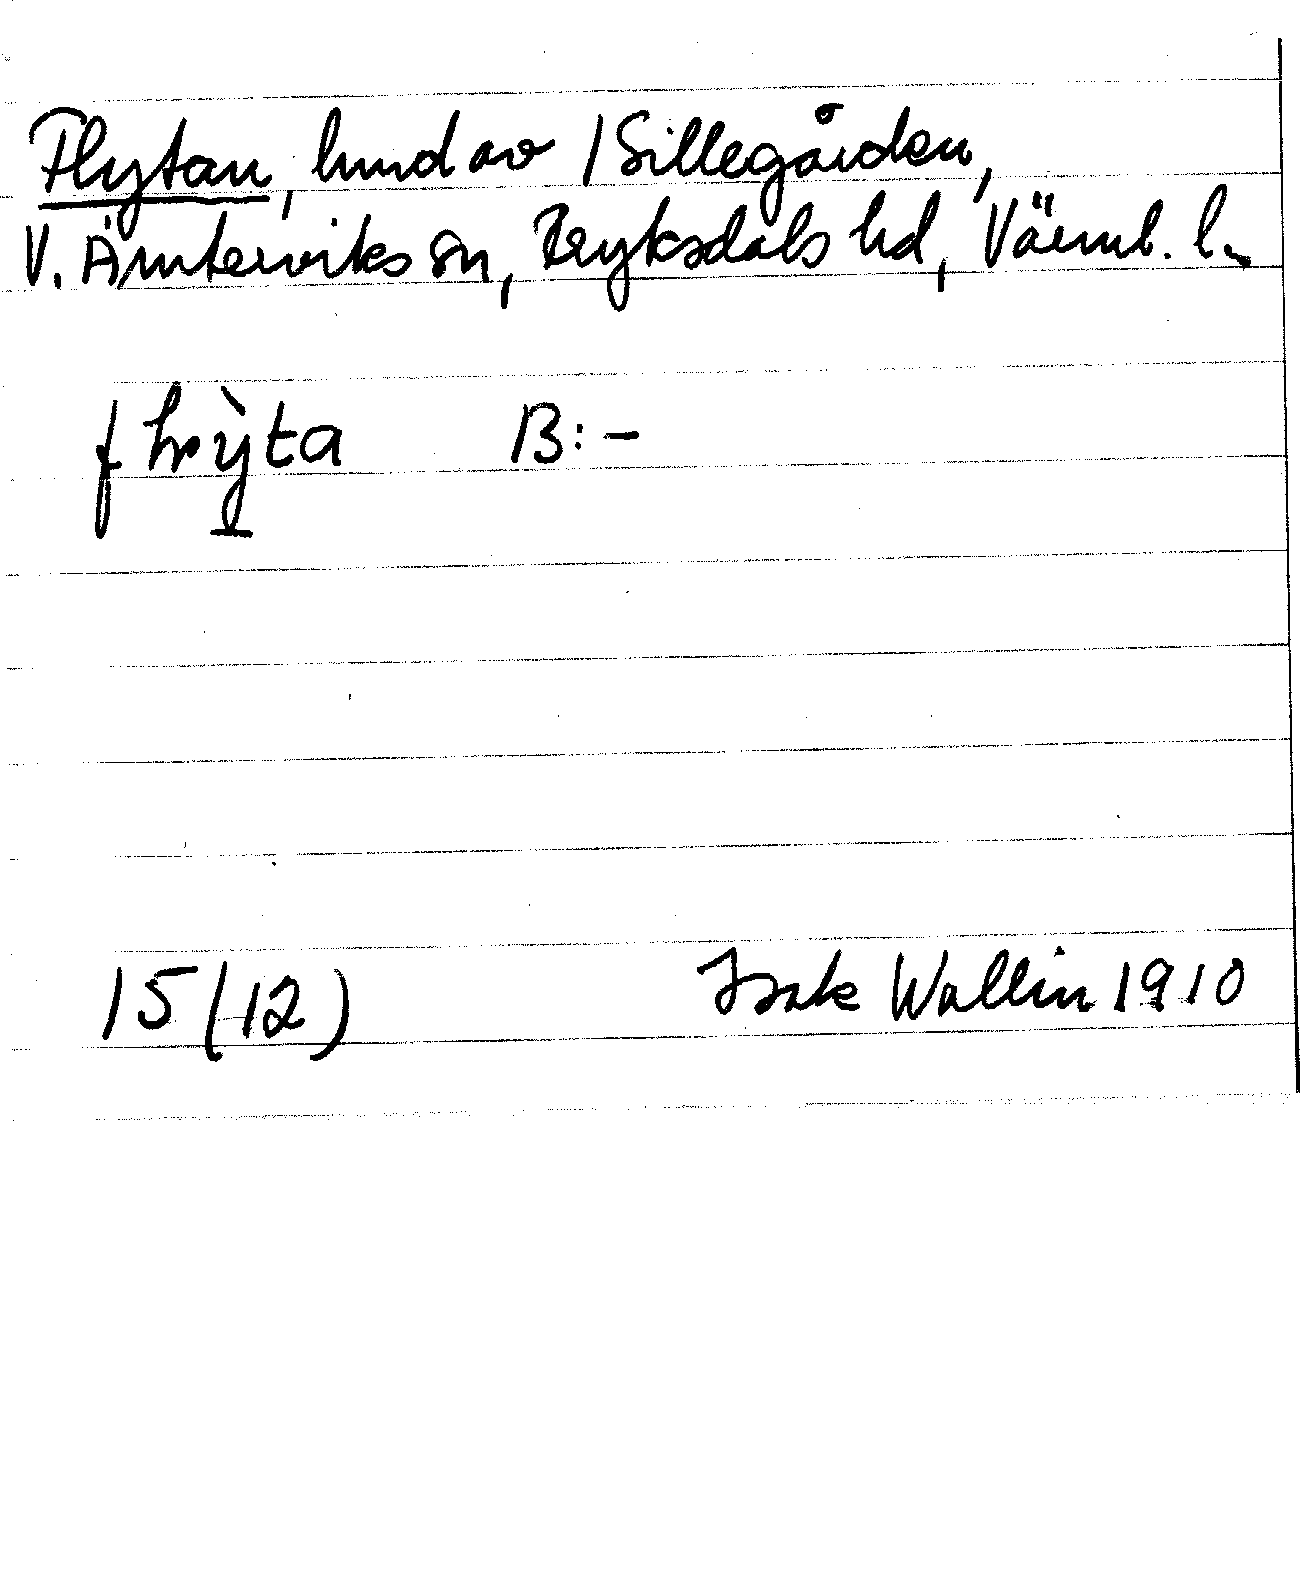 Flytan, hmd av 1 Sillegården,
V. Ämterviks sn, Fryksdals hd, Värml. l.
B: –
15 (12) Isak Wallin 1910